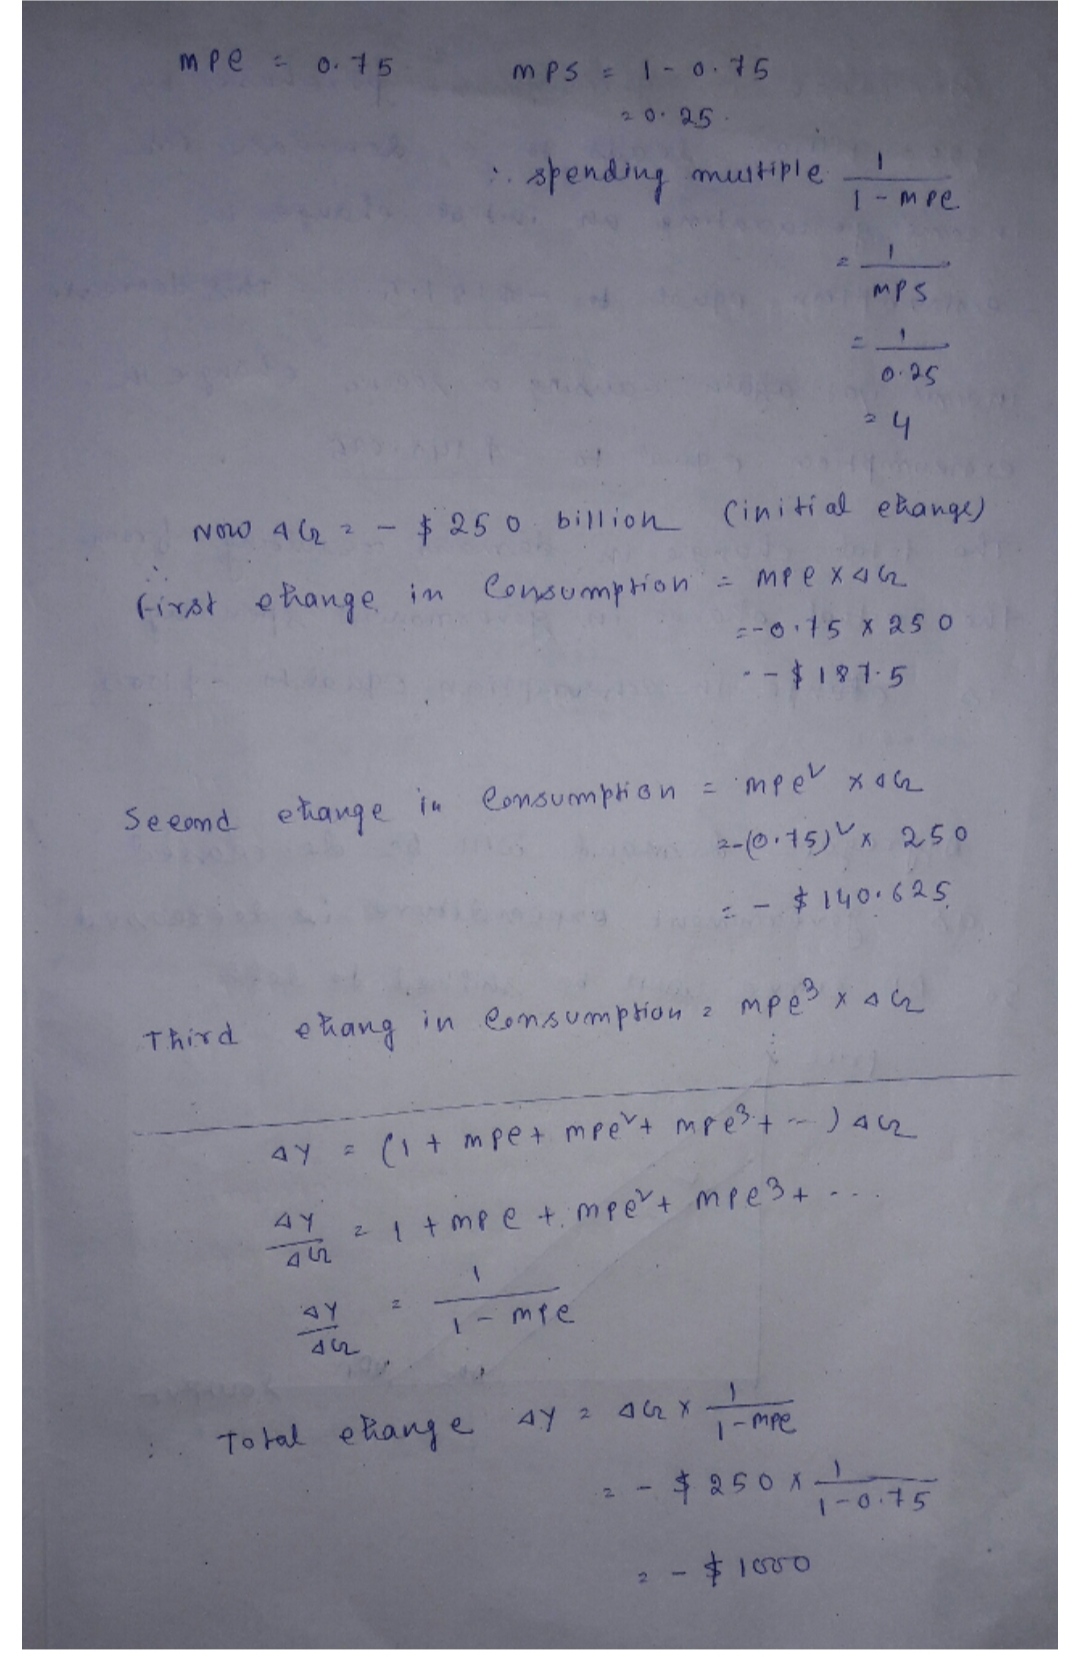 mpc = 0.75 mps = 1 - 0.75
= 0.25.
∴ spending multiple 1 / 1 - mpc
= 1 / mps
= 1 / 0.25
= 4
Now ΔG = - $ 250 billion (initial change)
∴ First change in Consumption = mpc x ΔG
= -0.75 x 250
= - $ 187.5
Second change in Consumption = mpc² x ΔG
= -(0.75)² x 250
= - $ 140.625
Third chang in Consumption = mpc³ x ΔG
ΔY = (1 + mpc + mpc² + mpc³ + --) ΔG
ΔY / ΔG = 1 + mpc + mpc² + mpc³ + ...
ΔY / ΔG = 1 / 1 - mpc
∴ Total change ΔY = ΔG x 1 / 1 - mpc
= - $ 250 x 1 / 1 - 0.75
= - $ 1000